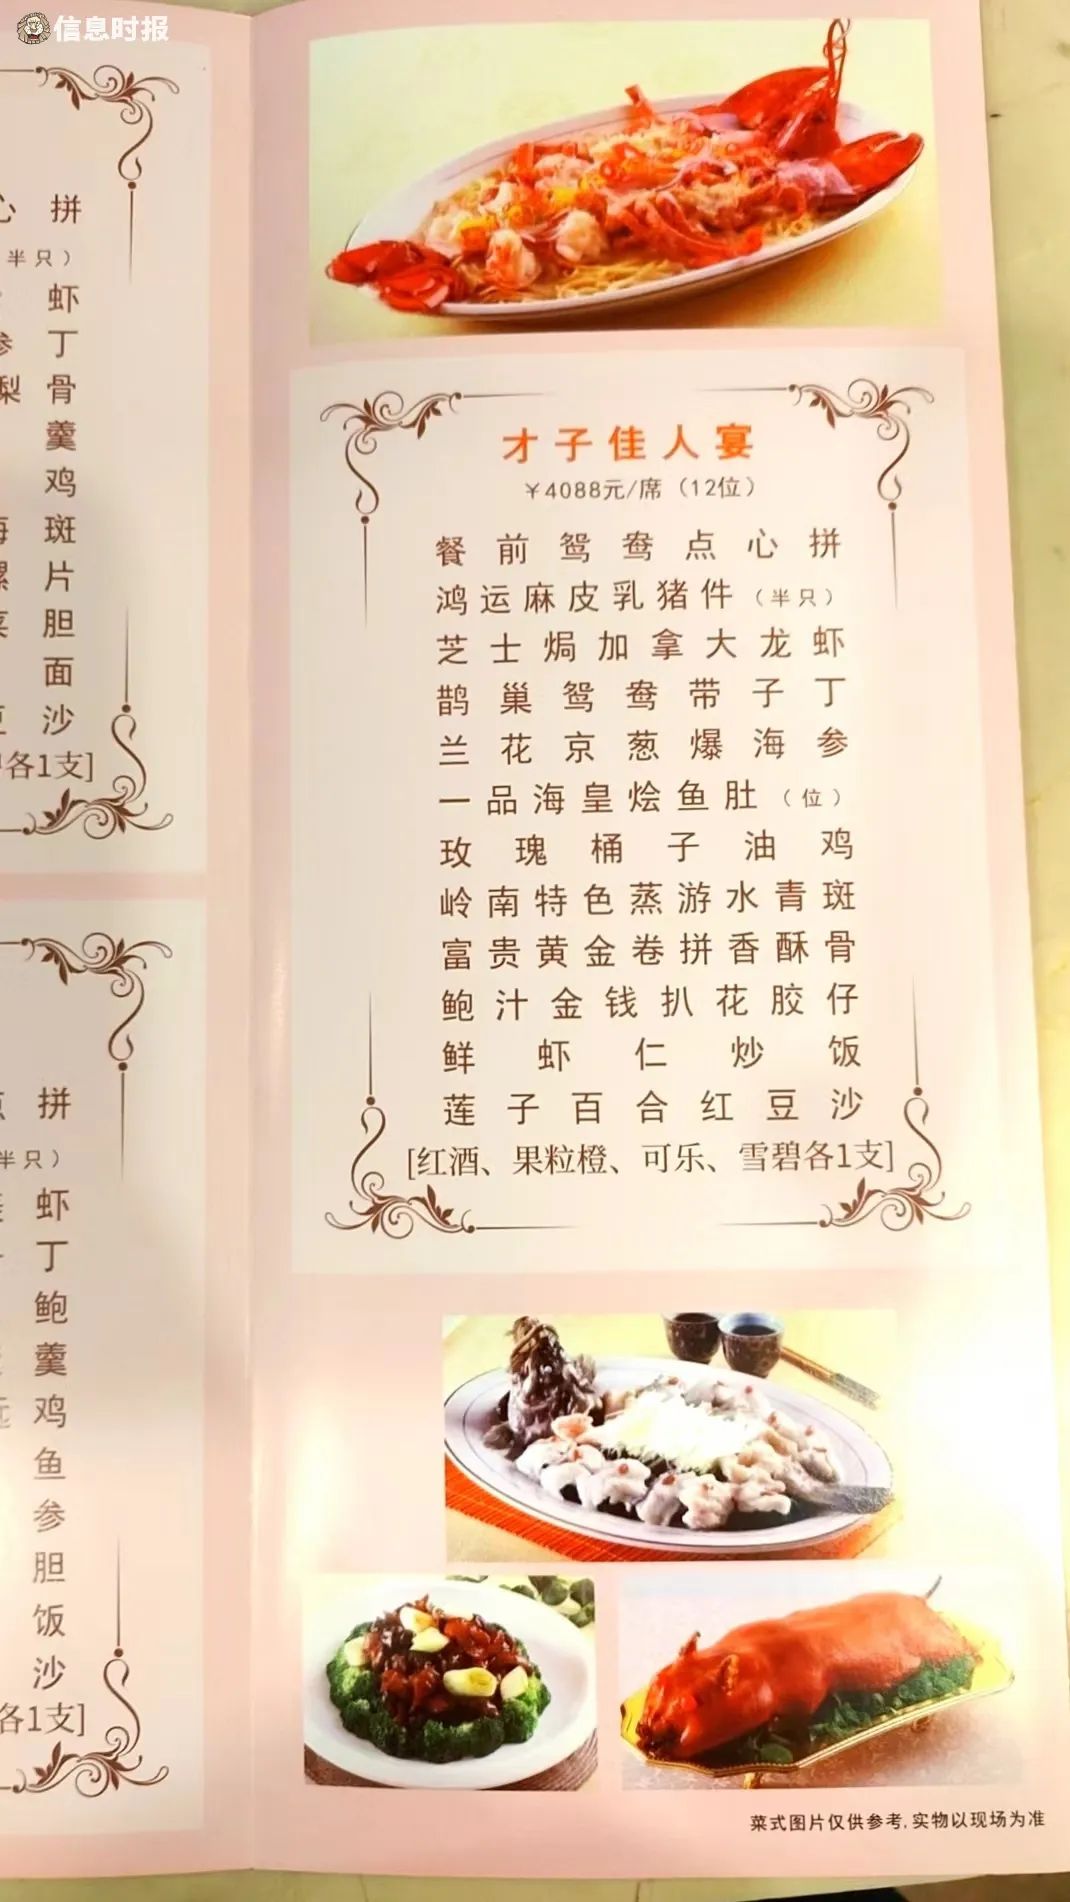 信息时报
心拼
半只）
虾
参丁
梨骨
羹
鸡
海斑
螺片
菜胆
面
豆沙
各1支]
拼
半只）
虾
丁
鲍
羹
鸡
鱼
参
胆
饭
沙
各1支]
才子佳人宴
¥4088元/席（12位）
餐前鸳鸯点心拼
鸿运麻皮乳猪件（半只）
芝士焗加拿大龙虾
鹊巢鸳鸯带子丁
兰花京葱爆海参
一品海皇烩鱼肚（位）
玫瑰桶子油鸡
岭南特色蒸游水青斑
富贵黄金卷拼香酥骨
鲍汁金钱扒花胶仔
鲜虾仁炒饭
莲子百合红豆沙
[红酒、果粒橙、可乐、雪碧各1支]
菜式图片仅供参考,实物以现场为准